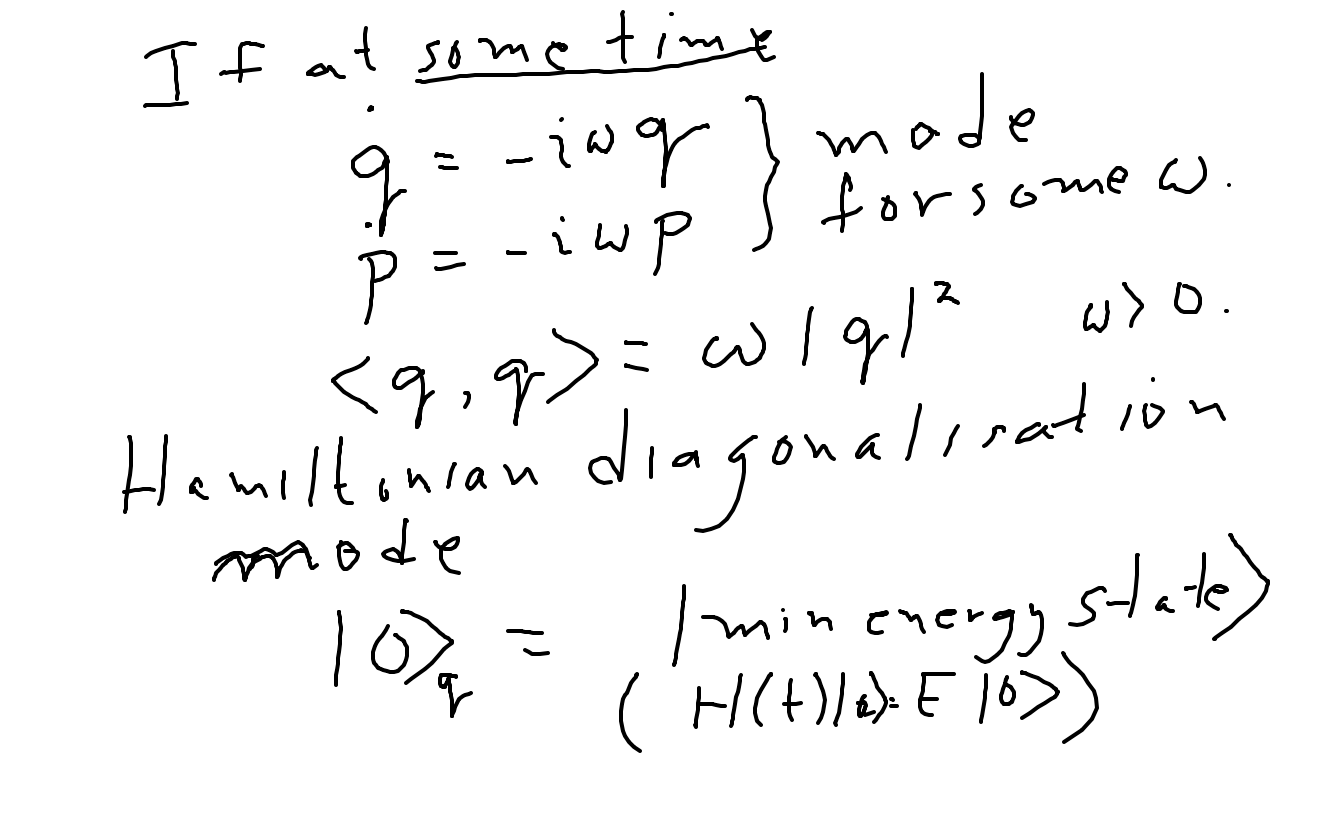 If at some time
q̇ = -iωq } mode
ṗ = -iωp } for some ω.
<q, q> = ω|q|² ω>0.
Hamiltonian diagonalisation
mode
|0>_q = |min energy state>
(H(t)|0>=E|0>)